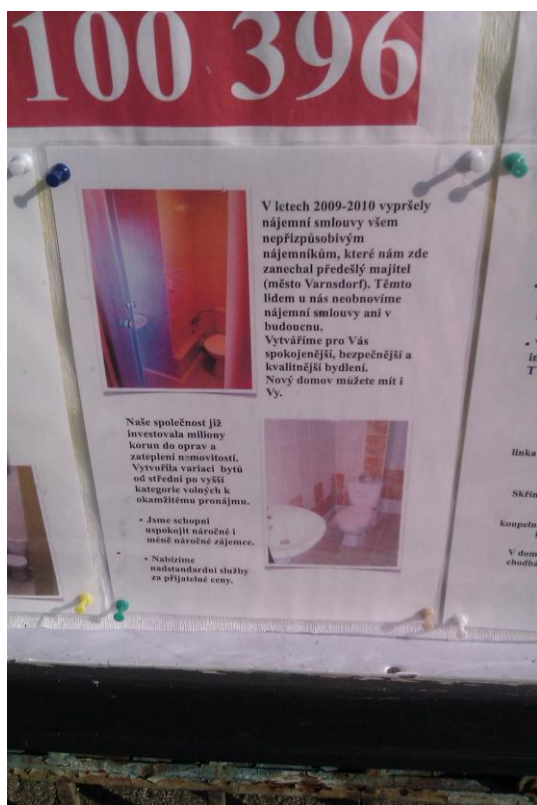 100 396
V letech 2009-2010 vypršely
nájemní smlouvy všem
nepřizpůsobivým
nájemníkům, které nám zde
zanechal předešlý majitel
(město Varnsdorf). Těmto
lidem u nás neobnovíme
nájemní smlouvy ani v
budoucnu.
Vytváříme pro Vás
spokojenější, bezpečnější a
kvalitnější bydlení.
Nový domov můžete mít i
Vy.
Naše společnost již
investovala miliony
korun do oprav a
zateplení nemovitostí.
Vytvořila variaci bytů
od střední po vyšší
kategorie volných k
okamžitému pronájmu.
• Jsme schopni
uspokojit náročné i
méně náročné zájemce.
• Nabízíme
nadstandardní služby
za přijatelné ceny.
linka
Skřín
koupeln
V dom
chodbá